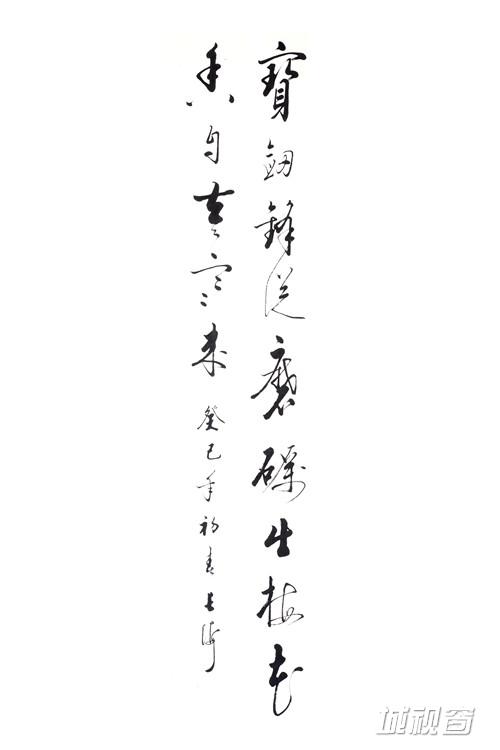 寶劍鋒從磨礪生梅花
香自苦寒來 癸巳年初春
城视窗